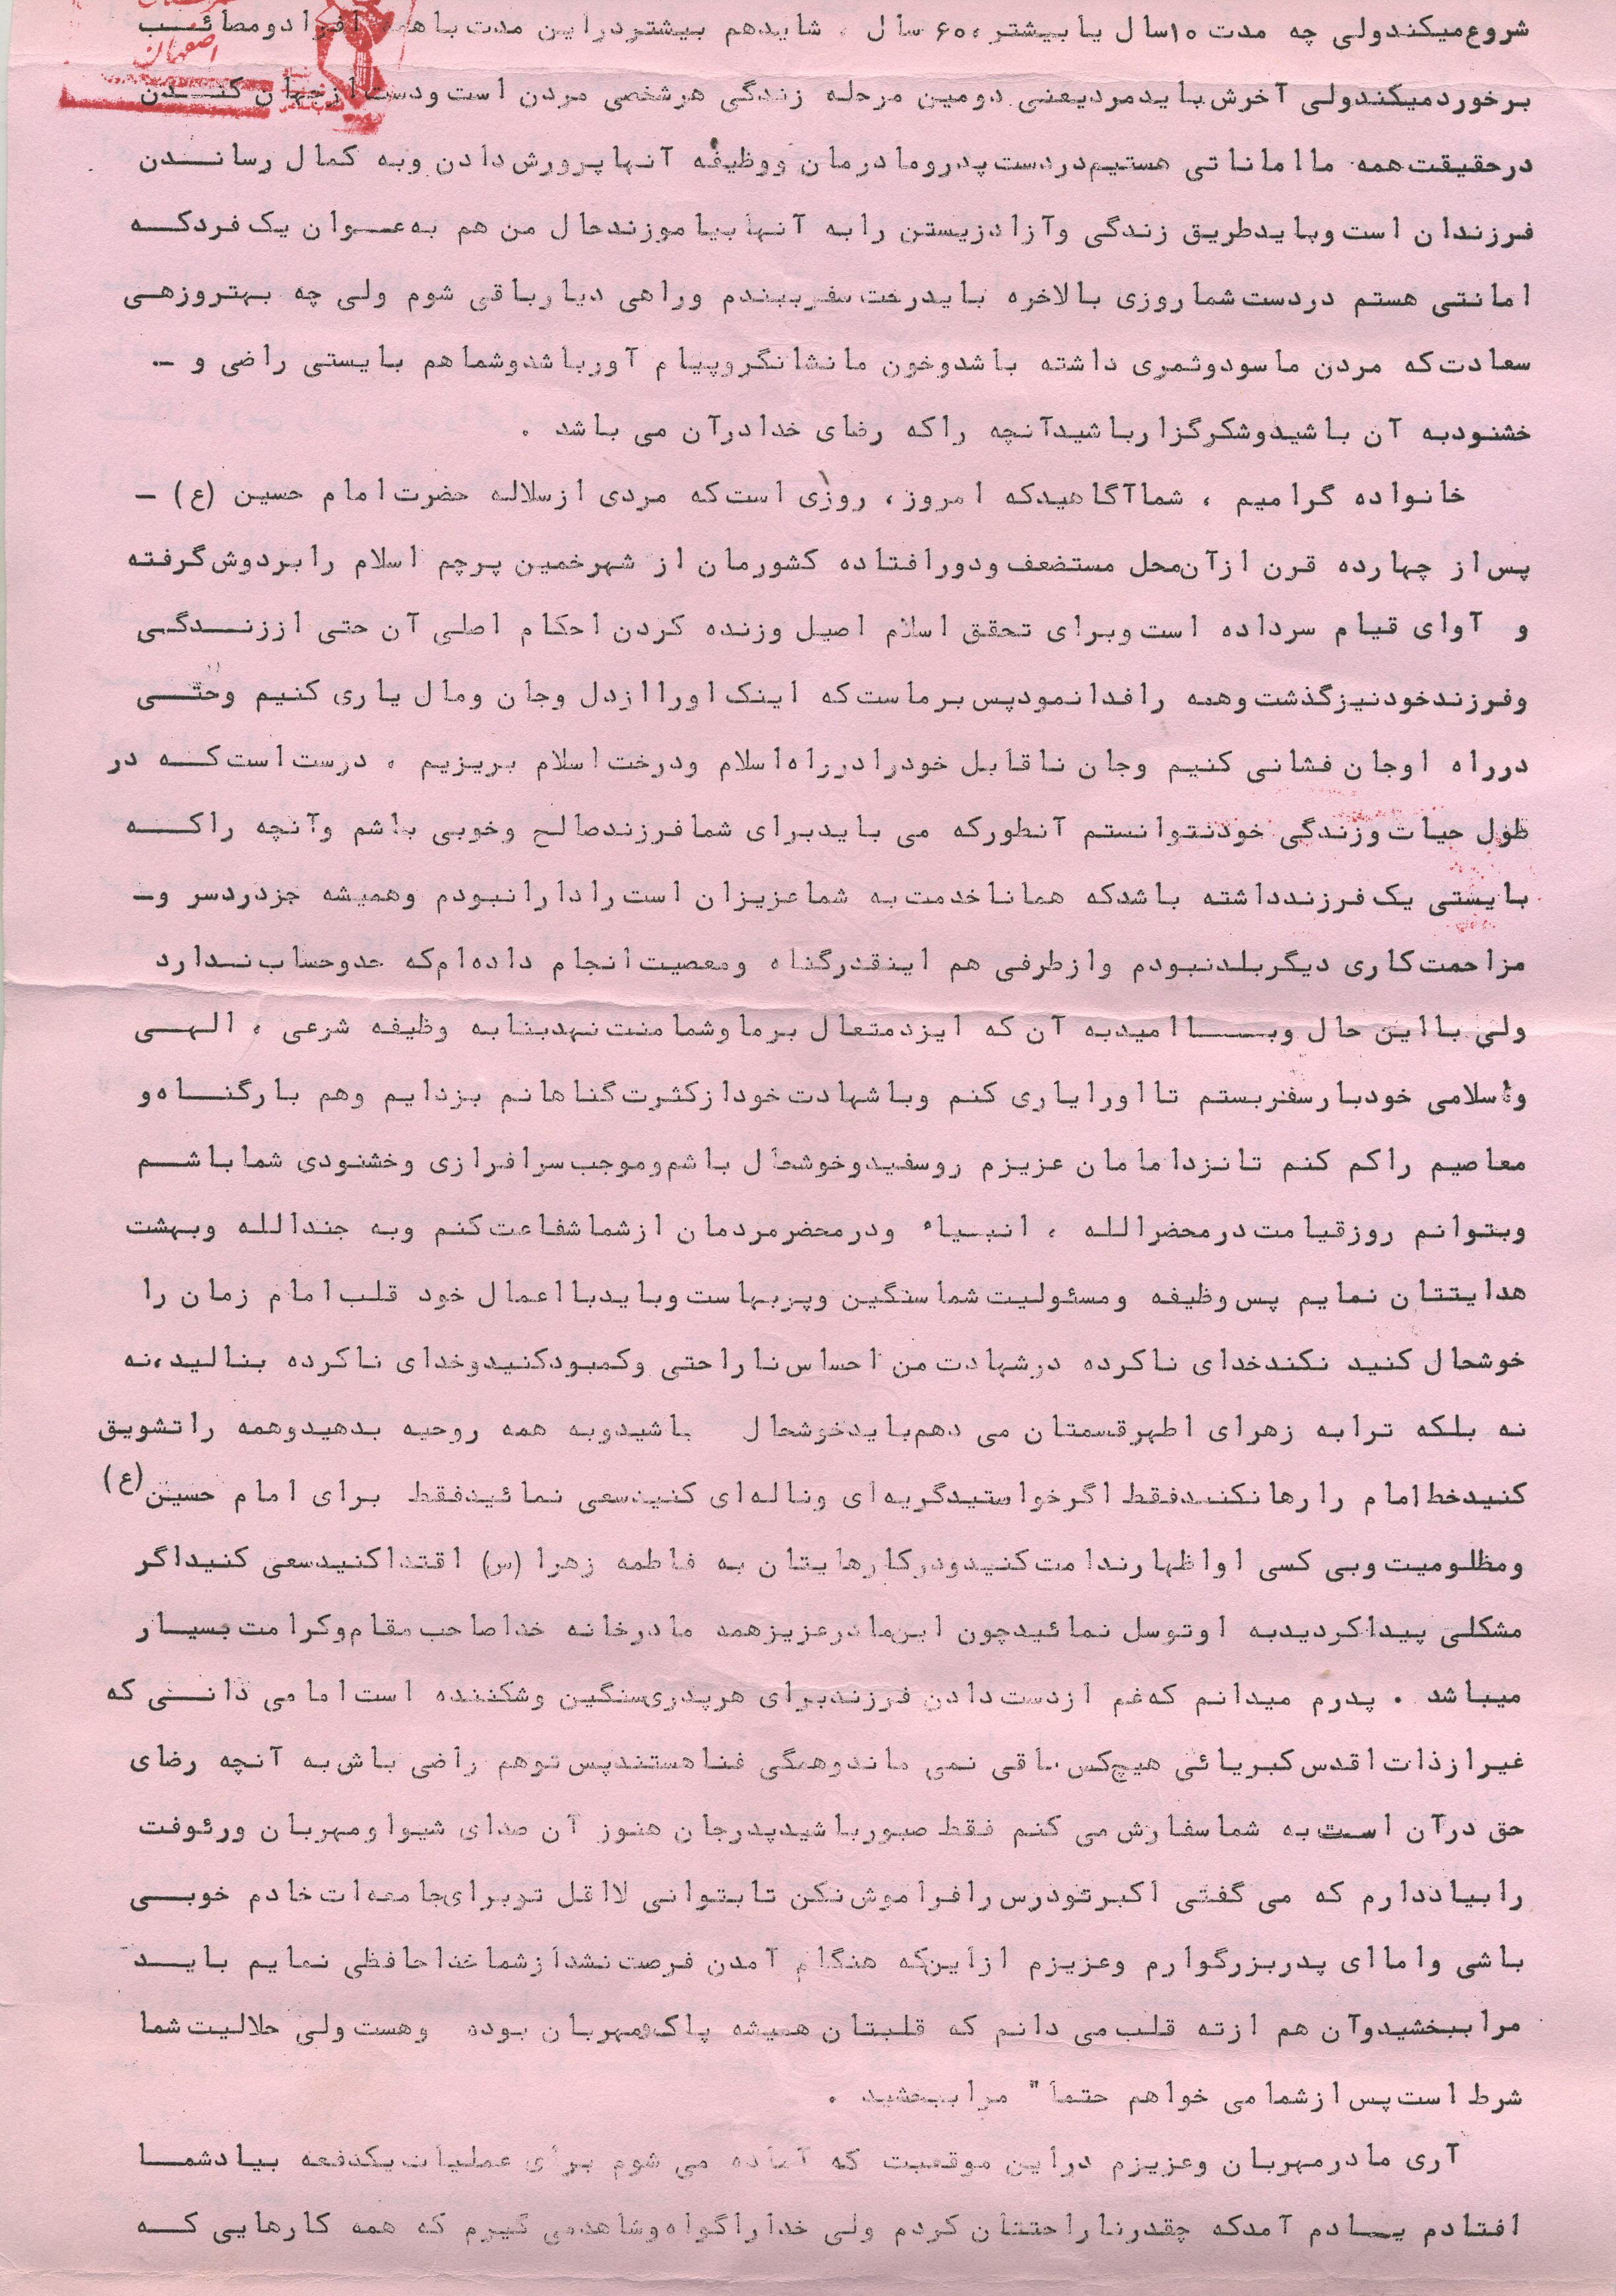 اصفهان
شروع میکندولی چه مدت ۱۰سال یا بیشتر، ۶۰ سال ، شایدهم بیشتردراین مدت باهمه افرادومصائب
برخوردمیکندولی آخرش بایدمردیعنی دومین مرحله زندگی هرشخصی مردن است ودست ازجهان کندن
درحقیقت همه ما اماناتی هستیم دردست پدرومادرمان ووظیفه آنها پرورش دادن وبه کمال رساندن
فرزندان است وبایدطریق زندگی وآزادزیستن رابه آنها بیاموزندحال من هم به عنوان یک فردکه
امانتی هستم دردست شما روزی بالاخره بایدرخت سفرببندم وراهی دیارباقی شوم ولی چه بهتروزهی
سعادت که مردن ما سودوثمری داشته باشدوخون ما نشانگروپیام آورباشدوشما هم بایستی راضی و -
خشنودبه آن باشیدوشکرگزارباشیدآنچه راکه رضای خدادرآن می باشد .
خانواده گرامیم ، شما آگاهیدکه امروز، روزی است که مردی ازسلاله حضرت امام حسین (ع) -
پس از چهارده قرن ازآن محل مستضعف ودورافتاده کشورمان از شهرخمین پرچم اسلام رابردوش گرفته
و آوای قیام سرداده است وبرای تحقق اسلام اصیل وزنده کردن احکام اصلی آن حتی اززندگی
وفرزندخودنیزگذشت وهمه رافدانمودپس برماست که اینک اوراازدل وجان ومال یاری کنیم وحتی
درراه اوجان فشانی کنیم وجان ناقابل خودرادرراه اسلام ودرخت اسلام بریزیم ، درست است که در
طول حیات وزندگی خودنتوانستم آنطورکه می بایدبرای شما فرزندصالح وخوبی باشم وآنچه راکه
بایستی یک فرزندداشته باشدکه همانا خدمت به شما عزیزان است رادارانبودم وهمیشه جزدردسر و-
مزاحمت کاری دیگربلدنبودم وازطرفی هم اینقدرگناه ومعصیت انجام داده ام که حدوحساب ندارد
ولی بااین حال وبا امیدبه آن که ایزدمتعال برما وشما منت نهدبنا به وظیفه شرعی ، الهی
واسلامی خودبارسفربستم تا اورایاری کنم وباشهادت خودازکثرت گناهانم بزدایم وهم بارگناه و
معاصیم راکم کنم تا نزدامامان عزیزم روسفیدوخوشحال باشم وموجب سرافرازی وخشنودی شما باشم
وبتوانم روزقیامت درمحضرالله ، انبیاء ودرمحضرمردمان ازشما شفاعت کنم وبه جندالله وبهشت
هدایتتان نمایم پس وظیفه ومسئولیت شما سنگین وپربهاست وبایدبااعمال خود قلب امام زمان را
خوشحال کنید نکندخدای ناکرده درشهادت من احساس ناراحتی وکمبودکنیدوخدای ناکرده بنالید،نه
نه بلکه ترابه زهرای اطهرقسمتان می دهم بایدخوشحال باشیدوبه همه روحیه بدهیدوهمه راتشویق
کنیدخط امام را رهانکنیدفقط اگرخواستیدگریه ای وناله ای کنیدسعی نمائیدفقط برای امام حسین (ع)
ومظلومیت وبی کسی اواظهارندامت کنیدودرکارهایتان به فاطمه زهرا (س) اقتداکنیدسعی کنیداگر
مشکلی پیداکردیدبه اوتوسل نمائیدچون این مادرعزیزهمه مادرخانه خداصاحب مقام وکرامت بسیار
میباشد . پدرم میدانم که غم ازدست دادن فرزندبرای هرپدری سنگین وشکننده است اما می دانی که
غیرازذات اقدس کبریائی هیچ کس باقی نمی ماندوهمگی فنا هستندپس توهم راضی باش به آنچه رضای
حق درآن است به شما سفارش می کنم فقط صبورباشیدپدرجان هنوز آن صدای شیوا ومهربان ورئوفت
رابیاددارم که می گفتی اکبرتودرس رافراموش نکن تا بتوانی لااقل تربرای جامعه ات خادم خوبی
باشی واماای پدربزرگوارم وعزیزم ازاین که هنگام آمدن فرصت نشدازشما خداحافظی نمایم باید
مراببخشیدوآن هم ازته قلب می دانم که قلبتان همیشه پاک ومهربان بوده وهست ولی حلالیت شما
شرط است پس ازشما می خواهم حتما" مراببخشید .
آری مادرمهربان وعزیزم دراین موقعیت که آماده می شوم برای عملیات یکدفعه بیادشما
افتادم یادم آمدکه چقدرناراحتتان کردم ولی خداراگواه وشاهدمی گیرم که همه کارهایی که